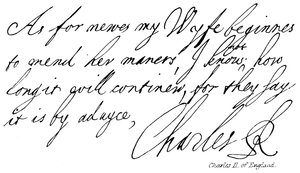 As for newes my Wyfe beginnes
to mend her maners, I know not how
long it will continew, for they say
it is by advyce,
Charles R
Charles II. of England.